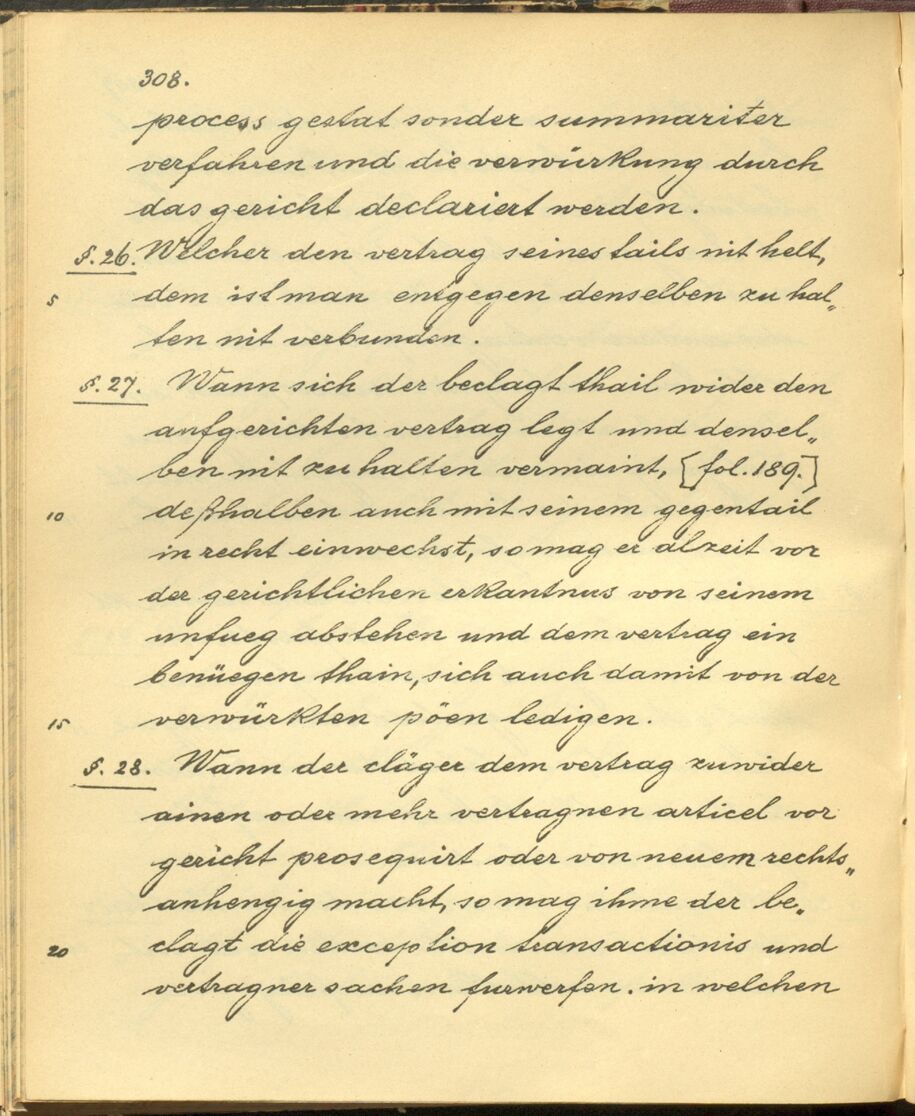 308.
process gestat sonder summariter
verfahren und die verwürkung durch
das gericht declariert werden.
§. 26. Welcher den vertrag seines tails nit helt,
5 dem ist man entgegen denselben zu hal„
ten nit verbunden.
§. 27. Wann sich der beclagt thail wider den
aufgerichten vertrag legt und densel„
ben nit zu halten vermaint, [fol. 189.]
10 deßhalben auch mit seinem gegentail
in recht einwechst, so mag er alzeit vor
der gerichtlichen erkantnus von seinem
unfueg abstehen und dem vertrag ein
benüegen thain, sich auch damit von der
15 verwürkten pöen ledigen.
§. 28. Wann der cläger dem vertrag zuwider
ainen oder mehr vertragnen articel vor
gericht prosequirt oder von neuem rechts„
anhengig macht, so mag ihme der be„
20 clagt die exception transactionis und
vertragner sachen furwerfen. in welchen